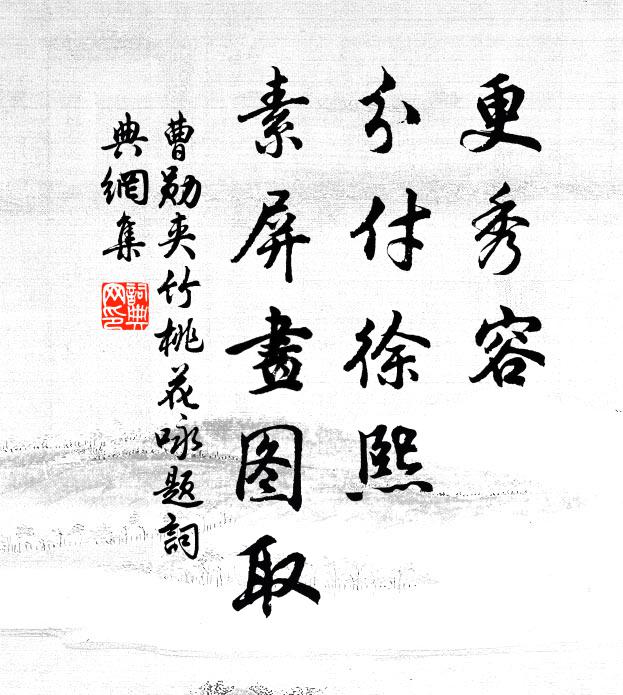 更秀容
分付徐熙
素屏畫图取
曹勋夹竹桃花咏題詞
典網集
詞典
网印